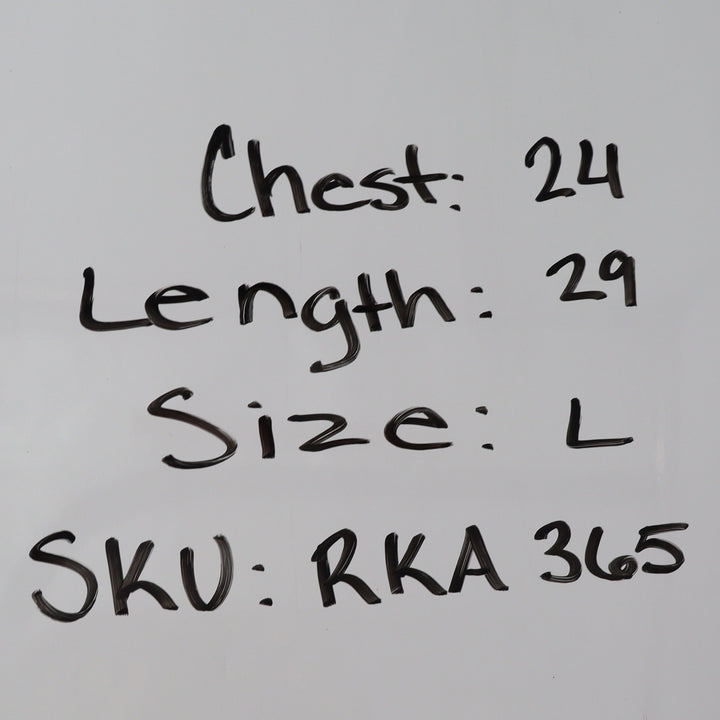 Chest: 24
Length: 29
Size: L
SKU: RKA 365